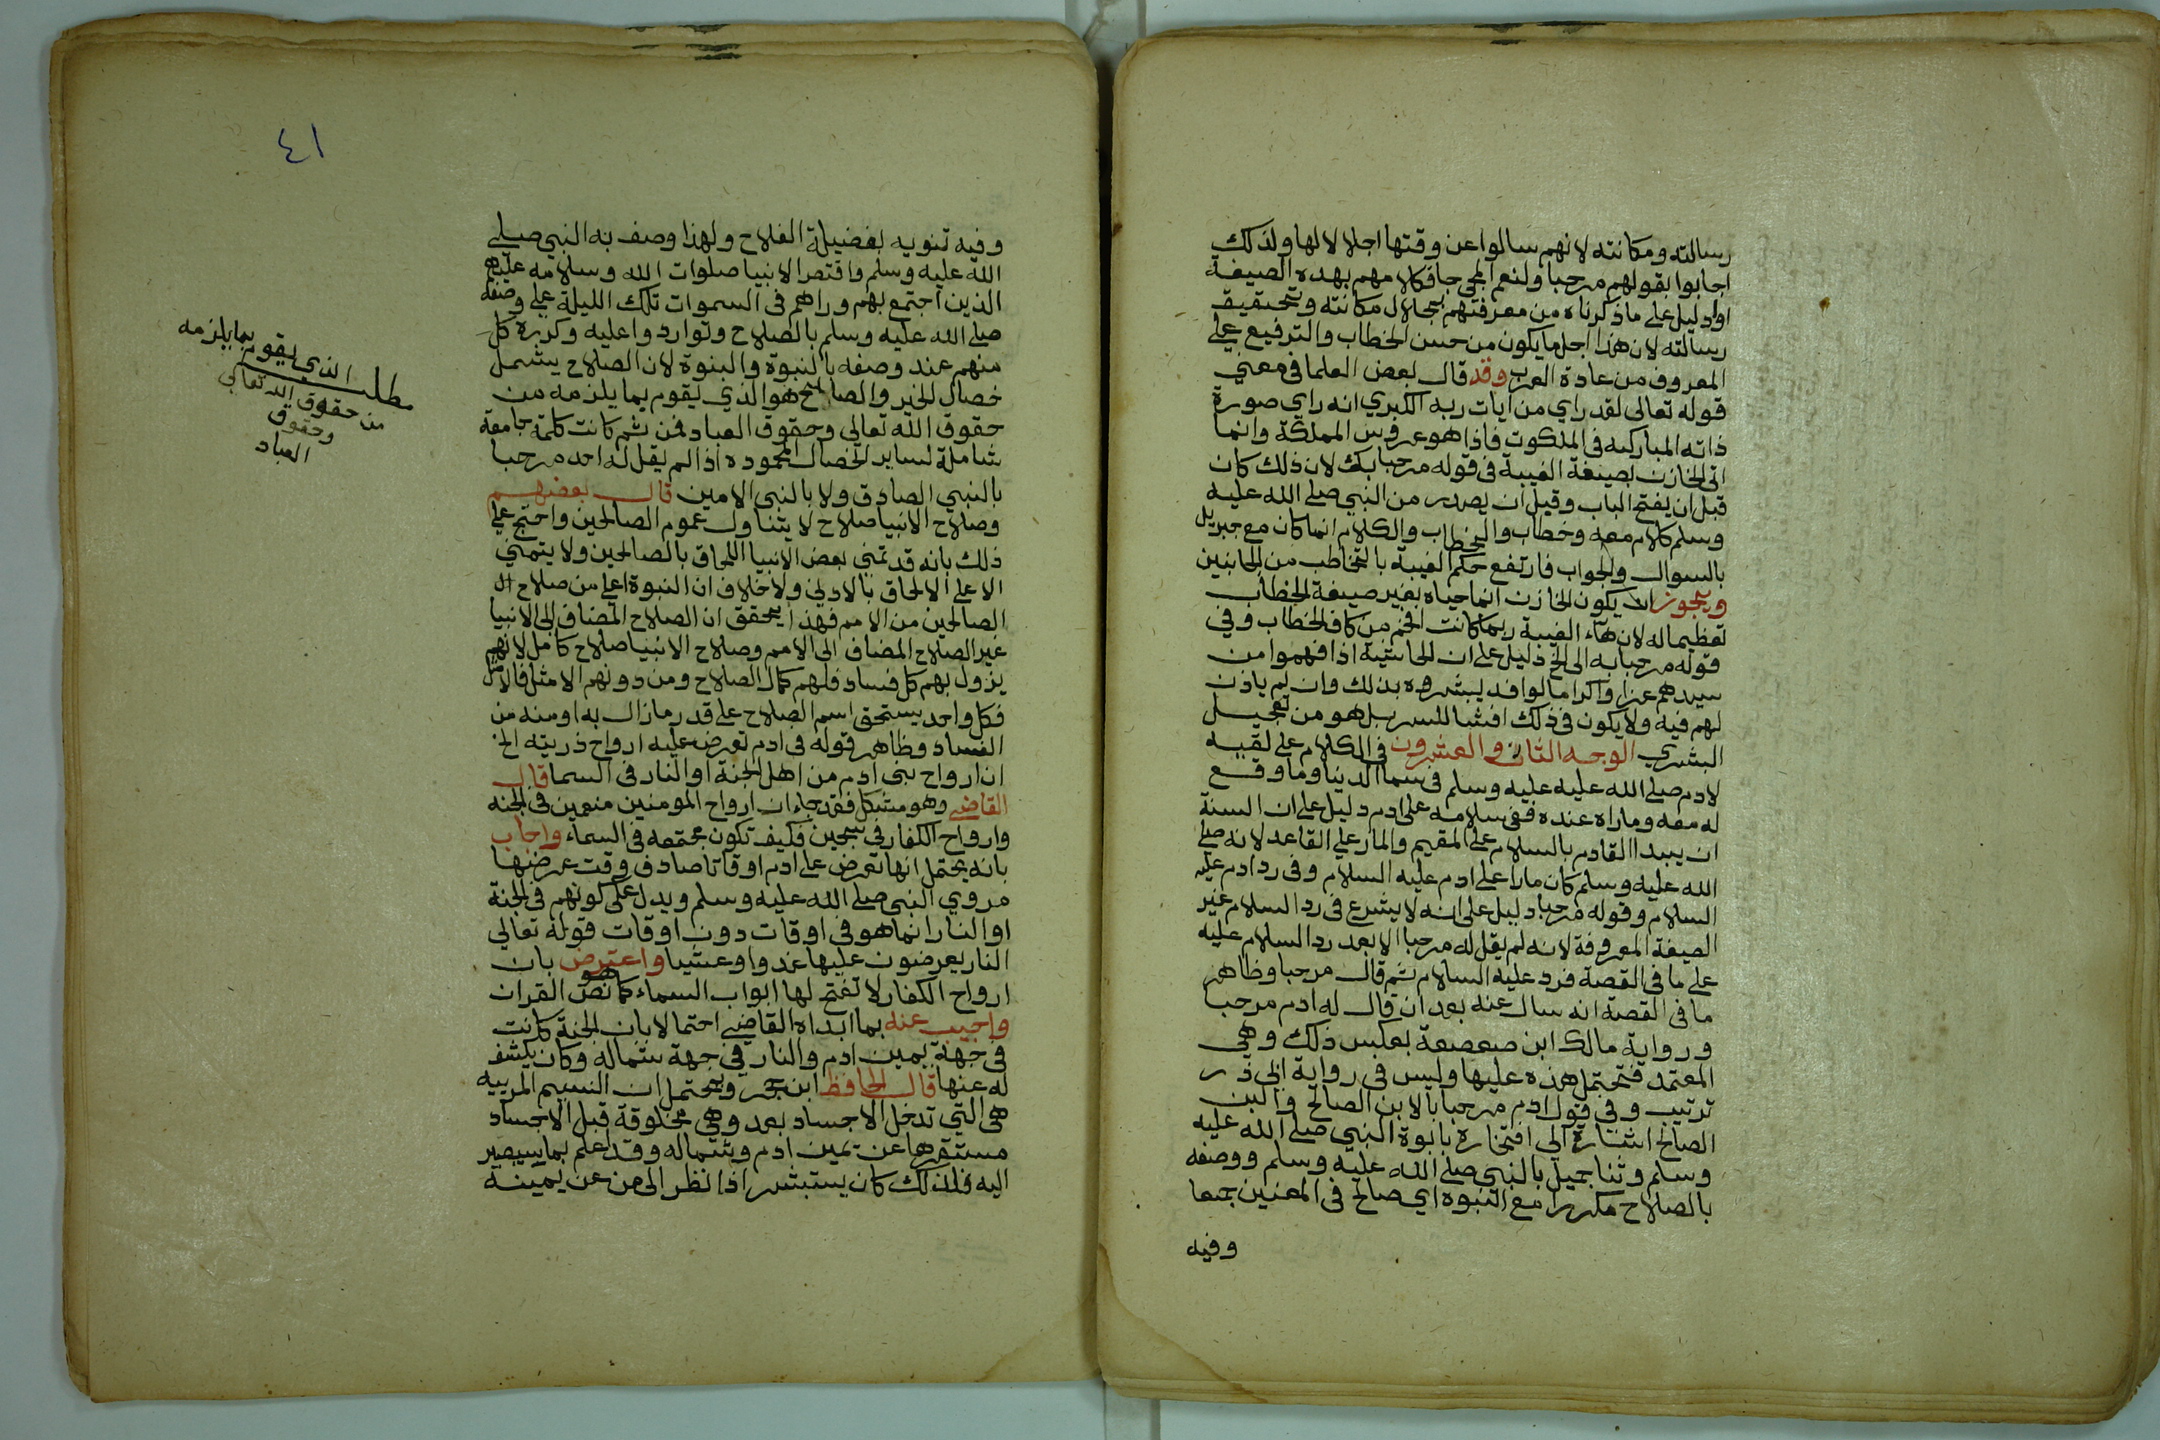 رسالته ومكانته لانهم سالوا عن وقتها اجلالا لها ولذلك
اجابوا بقولهم مرحبا ولنعم المجي جا فكلامهم بهده الصيغة
اول دليل على ما ذكرناه من معرفتهم بجلال مكانته وتحقيق
رسالته لان هذا اجل ما يكون من حسن الخطاب والترفيع على
المعروف من عادة العرب وقد قال بعض العلما في معني
قوله تعالى لقد راي من آيات ربه الكبري انه راي صورة
ذاته المباركه في الملكوت فاذا هو عروس المملكة وانما
اتى الخازن بصيغة الغيبة في قوله مرحبا بك لان ذلك كان
قبل ان يفتح الباب وقبل ان يصدر من النبي صلى الله عليه
وسلم كلام معه وخطاب والخطاب والكلام انما كان مع جبريل
بالسوال والجواب فارتفع حكم الغيبة بالتخاطب من الجانبين
ويجوز ان يكون الخازن انما حياه بغير صيغة الخطاب
تعظيما له لان هآء الغيبة ربما كانت افخم من كاف الخطاب وفي
قوله مرحبا به الى الخ دليل على ان الحاشية اذا فهموا من
سيدهم عزا واكراما لوافد يبشروه بذلك وان لم ياذن
لهم فيه ولا يكون في ذلك افشا للسر بل هو من تعجيل
البشري الوجه الثاني والعشرون في الكلام على لقيه
لادم صلى الله عليه عليه وسلم في سما الدنيا وما وقع
له معه وما راه عنده ففي سلامه على ادم دليل على ان السنة
ان يبدا القادم بالسلام على المقيم والمار على القاعد لانه صلى
الله عليه وسلم كان مارا على ادم عليه السلام وفي رد ادم عليه
السلام وقوله مرحبا دليل على انه لا يشرع في رد السلام غير
الصيغة المعروفة لانه لم يقل له مرحبا الا بعد رد السلام عليه
على ما في القصة فرد عليه السلام ثم قال مرحبا وظاهر
ما في القصة انه سال عنه بعد ان قال له ادم مرحبا
ورواية مالك ابن صعصعة بعكس ذلك وهي
المعتمد فتحتمل هذه عليها وليس في رواية ابي ذر
ترتيب وفي قول ادم مرحبا بالابن الصالح والبن
الصالح اشارة الى افتخاره بابوة النبي صلى الله عليه
وسلم وثنا جميل بالنبي صلى الله عليه وسلم ووصفه
بالصلاح مكررا مع النبوه اي صالح في المعنين جمعا
وفيه
٤١
وفيه تنويه بفضيلة الفلاح ولهذا وصف به النبي صلى
الله عليه وسلم واقتصر الانبيا صلوات الله وسلامه عليهم
الذين اجتمع بهم وراهم في السموات تلك الليلة على وصفه
صلى الله عليه وسلم بالصلاح وتواردوا عليه وكرره كل
منهم عند وصفه بالنبوة والبنوة لان الصلاح يشمل
خصال الخير والصالح هو الذي يقوم بما يلزمه من
حقوق الله تعالي وحقوق العباد فمن ثم كانت كلمة جامعة
شاملة لساير الخصال المحموده اذ لم يقل له احد مرحبا
بالنبي الصادق ولا بالنبي الامين قال بعضهم
وصلاح الانبيا صلاح لا يتناول عموم الصالحين واحتج على
ذلك بانه قد تمني بعض الانبيا اللحاق بالصالحين ولا يتمني
الاعلى الالحاق بالادني ولا خلاف ان النبوة اعلي من صلاح ال
الصالحين من الامم فهذا يحقق ان الصلاح المضاف الى الانبيا
غير الصلاح المضاف الى الامم وصلاح الانبيا صلاح كامل لانهم
يزول بهم كل فساد فلهم كمال الصلاح ومن دونهم الامثل فالامثل
فكل واحد يستحق اسم الصلاح على قدر ما زال به او منه من
الفساد وظاهر قوله في ادم تعرض عليه ارواح ذريته الخ
ان ارواح بني ادم من اهل الجنة او النار في السما قال
القاضي وهو مشكل فقد جاء ان ارواح المومنين منعمين في الجنه
وارواح الكفار في سجين فكيف تكون مجتمعه في السماء واجاب
بانه يحتمل انها تعرض على ادم اوقاتا صادف وقت عرضها
مروي النبي صلى الله عليه وسلم ويدل على كونهم في الجنة
او النار انما هو في اوقات دون اوقات قوله تعالي
النار يعرضون عليها غدوا وعشيا واعترض بان
ارواح الكفار لا تفتح لها ابواب السماء كما هو نص القران
واجيب عنه بما ابداه القاضي احتمالا بان الجنة كانت
في جهة يمين ادم والنار في جهة شماله وكان يكشف
له عنها قال الحافظ ابن حجر ويحتمل ان النسم المرييه
هي التي تدخل الاجساد بعد وهي مخلوقة قبل الاجساد
مستقرها عن يمين ادم وشماله وقد اعلم بما سيصير
اليه فلذلك كان يستبشر اذا نظر الى من عن يمينه
مطلب الذي يقوم بما يلزمه
من حقوق الله تعالي
وحقوق
العباد